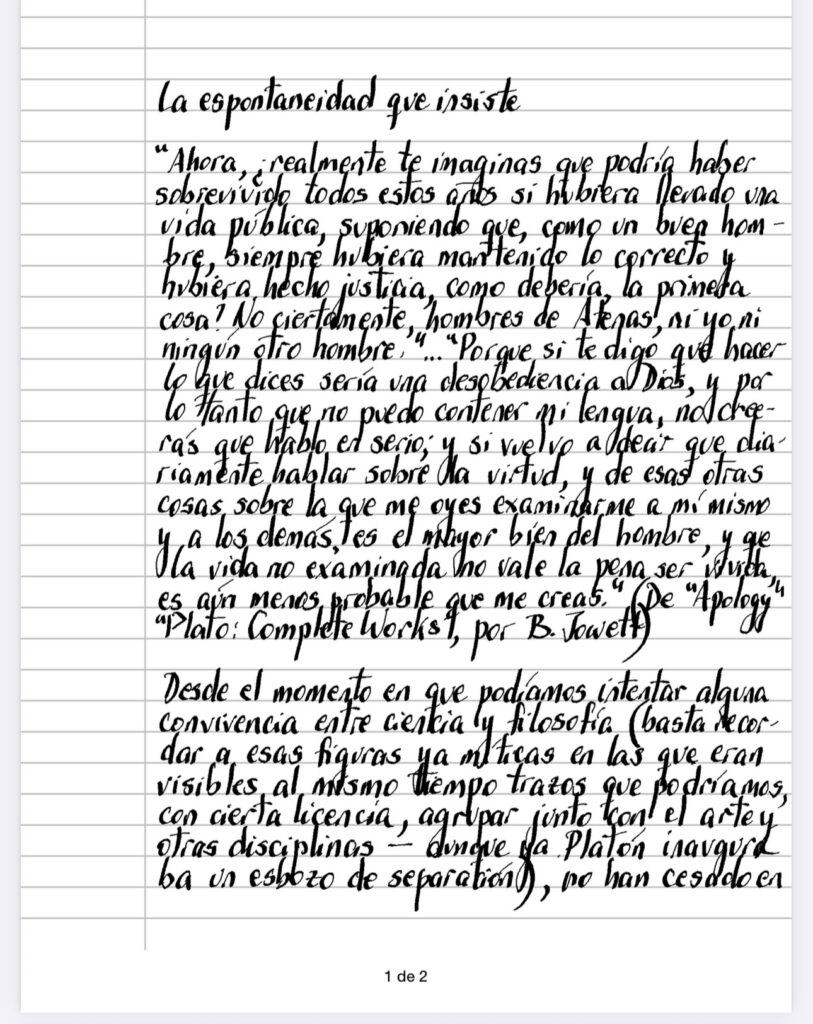 La espontaneidad que insiste
"Ahora, ¿realmente te imaginas que podría haber
sobrevivido todos estos años si hubiera llevado una
vida pública, suponiendo que, como un buen hom-
bre, siempre hubiera mantenido lo correcto y
hubiera hecho justicia, como debería, la primera
cosa? No ciertamente, hombres de Atenas, ni yo ni
ningún otro hombre."..."Porque si te digo que hacer
lo que dices sería una desobediencia a Dios, y por
lo tanto que no puedo contener mi lengua, no cree-
rás que hablo en serio; y si vuelvo a decir que dia-
riamente hablar sobre la virtud, y de esas otras
cosas sobre la que me oyes examinarme a mí mismo
y a los demás, es el mayor bien del hombre, y que
la vida no examinada no vale la pena ser vivida,
es aún menos probable que me creas." (De "Apology"
"Plato: Complete Works", por B. Jowett)
Desde el momento en que podíamos intentar alguna
convivencia entre ciencia y filosofía (basta recor-
dar a esas figuras ya míticas en las que eran
visibles al mismo tiempo trazos que podríamos,
con cierta licencia, agrupar junto con el arte y
otras disciplinas — aunque ya Platón inaugura
ba un esbozo de separación), no han cesado en
1 de 2